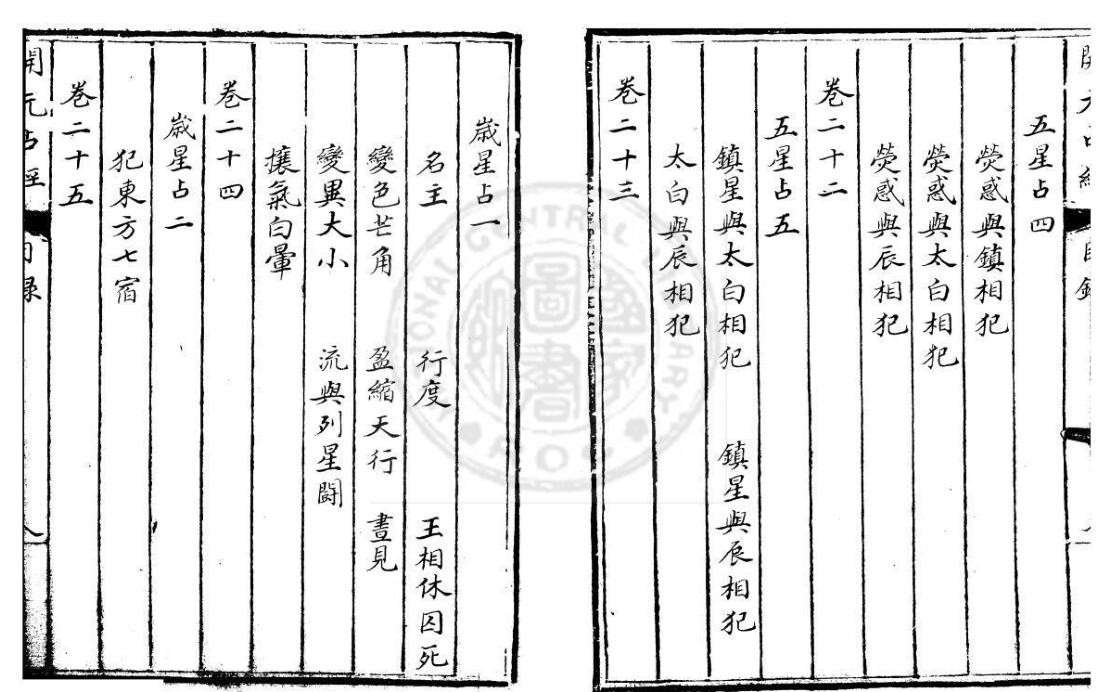 開元占經 目錄
五星占四
熒惑與鎮相犯
熒惑與太白相犯
熒惑與辰相犯
卷二十二
五星占五
鎮星與太白相犯 鎮星與辰相犯
太白與辰相犯
卷二十三
歲星占一
名主 行度 王相休囚死
變色芒角 盈縮天行 晝見
變異大小 流與列星鬭
攘氣白暈
卷二十四
歲星占二
犯東方七宿
卷二十五
開元占經 目錄 八
NATIONAL CENTRAL LIBRARY
R O C
國家圖書館